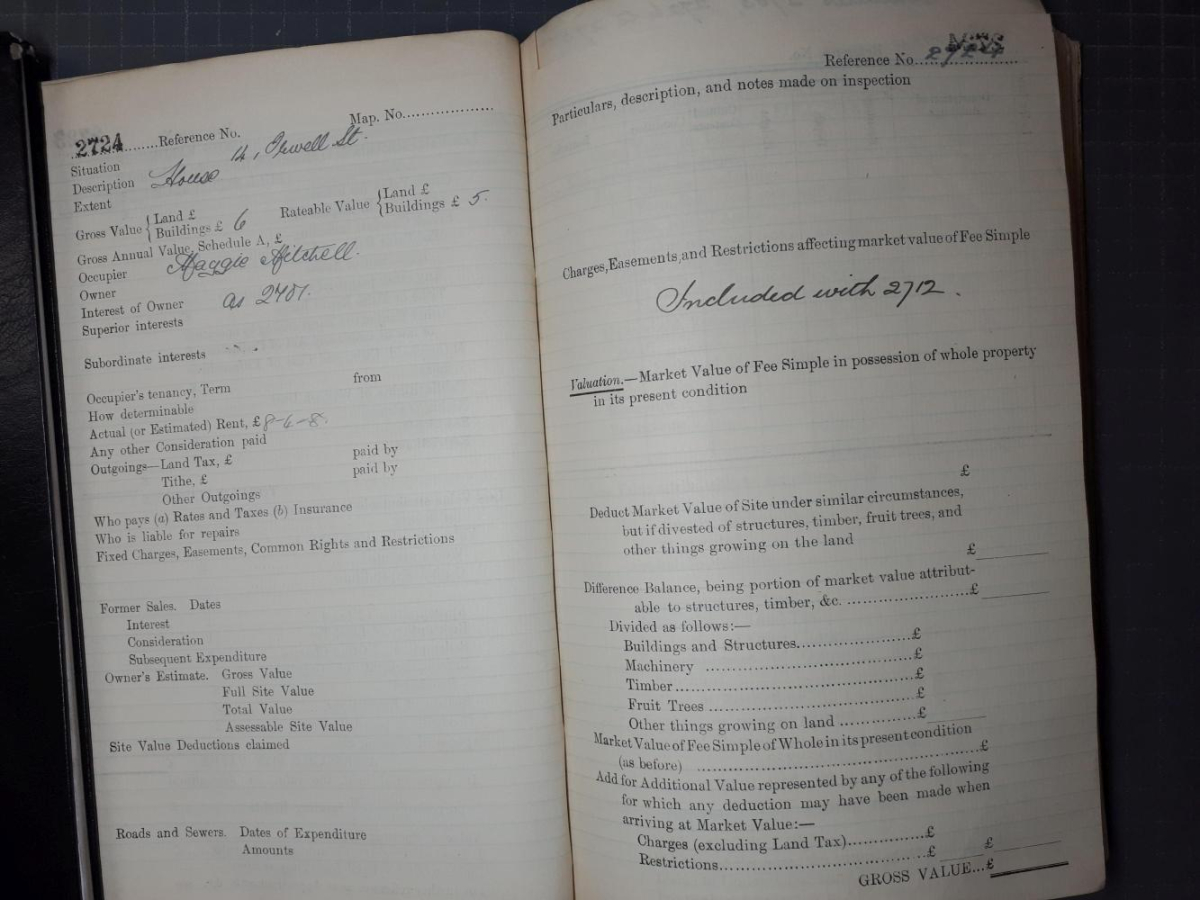 2724 ........Reference No.
Map. No..................
Situation 14, Orwell St.
Description House
Extent
Gross Value { Land £
Buildings £ 6
Rateable Value { Land £
Buildings £ 5.
Gross Annual Value, Schedule A, £
Occupier Maggie Mitchell.
Owner
Interest of Owner as 2701.
Superior interests
Subordinate interests
Occupier's tenancy, Term from
How determinable
Actual (or Estimated) Rent, £ 8-6-8.
Any other Consideration paid
Outgoings—Land Tax, £ paid by
Tithe, £ paid by
Other Outgoings
Who pays (a) Rates and Taxes (b) Insurance
Who is liable for repairs
Fixed Charges, Easements, Common Rights and Restrictions
Former Sales. Dates
Interest
Consideration
Subsequent Expenditure
Owner's Estimate. Gross Value
Full Site Value
Total Value
Assessable Site Value
Site Value Deductions claimed
Roads and Sewers. Dates of Expenditure
Amounts
Reference No. 2724
Particulars, description, and notes made on inspection
Charges, Easements, and Restrictions affecting market value of Fee Simple
Included with 2712.
Valuation.—Market Value of Fee Simple in possession of whole property
in its present condition
£
Deduct Market Value of Site under similar circumstances,
but if divested of structures, timber, fruit trees, and
other things growing on the land
£
Difference Balance, being portion of market value attribut-
able to structures, timber, &c. ......................£
Divided as follows:—
Buildings and Structures....................£
Machinery ....................................£
Timber..........................................£
Fruit Trees ...................................£
Other things growing on land .............£
Market Value of Fee Simple of Whole in its present condition
(as before) ..................................................£
Add for Additional Value represented by any of the following
for which any deduction may have been made when
arriving at Market Value:—
Charges (excluding Land Tax)..............£
Restrictions....................................£ £
GROSS VALUE...£